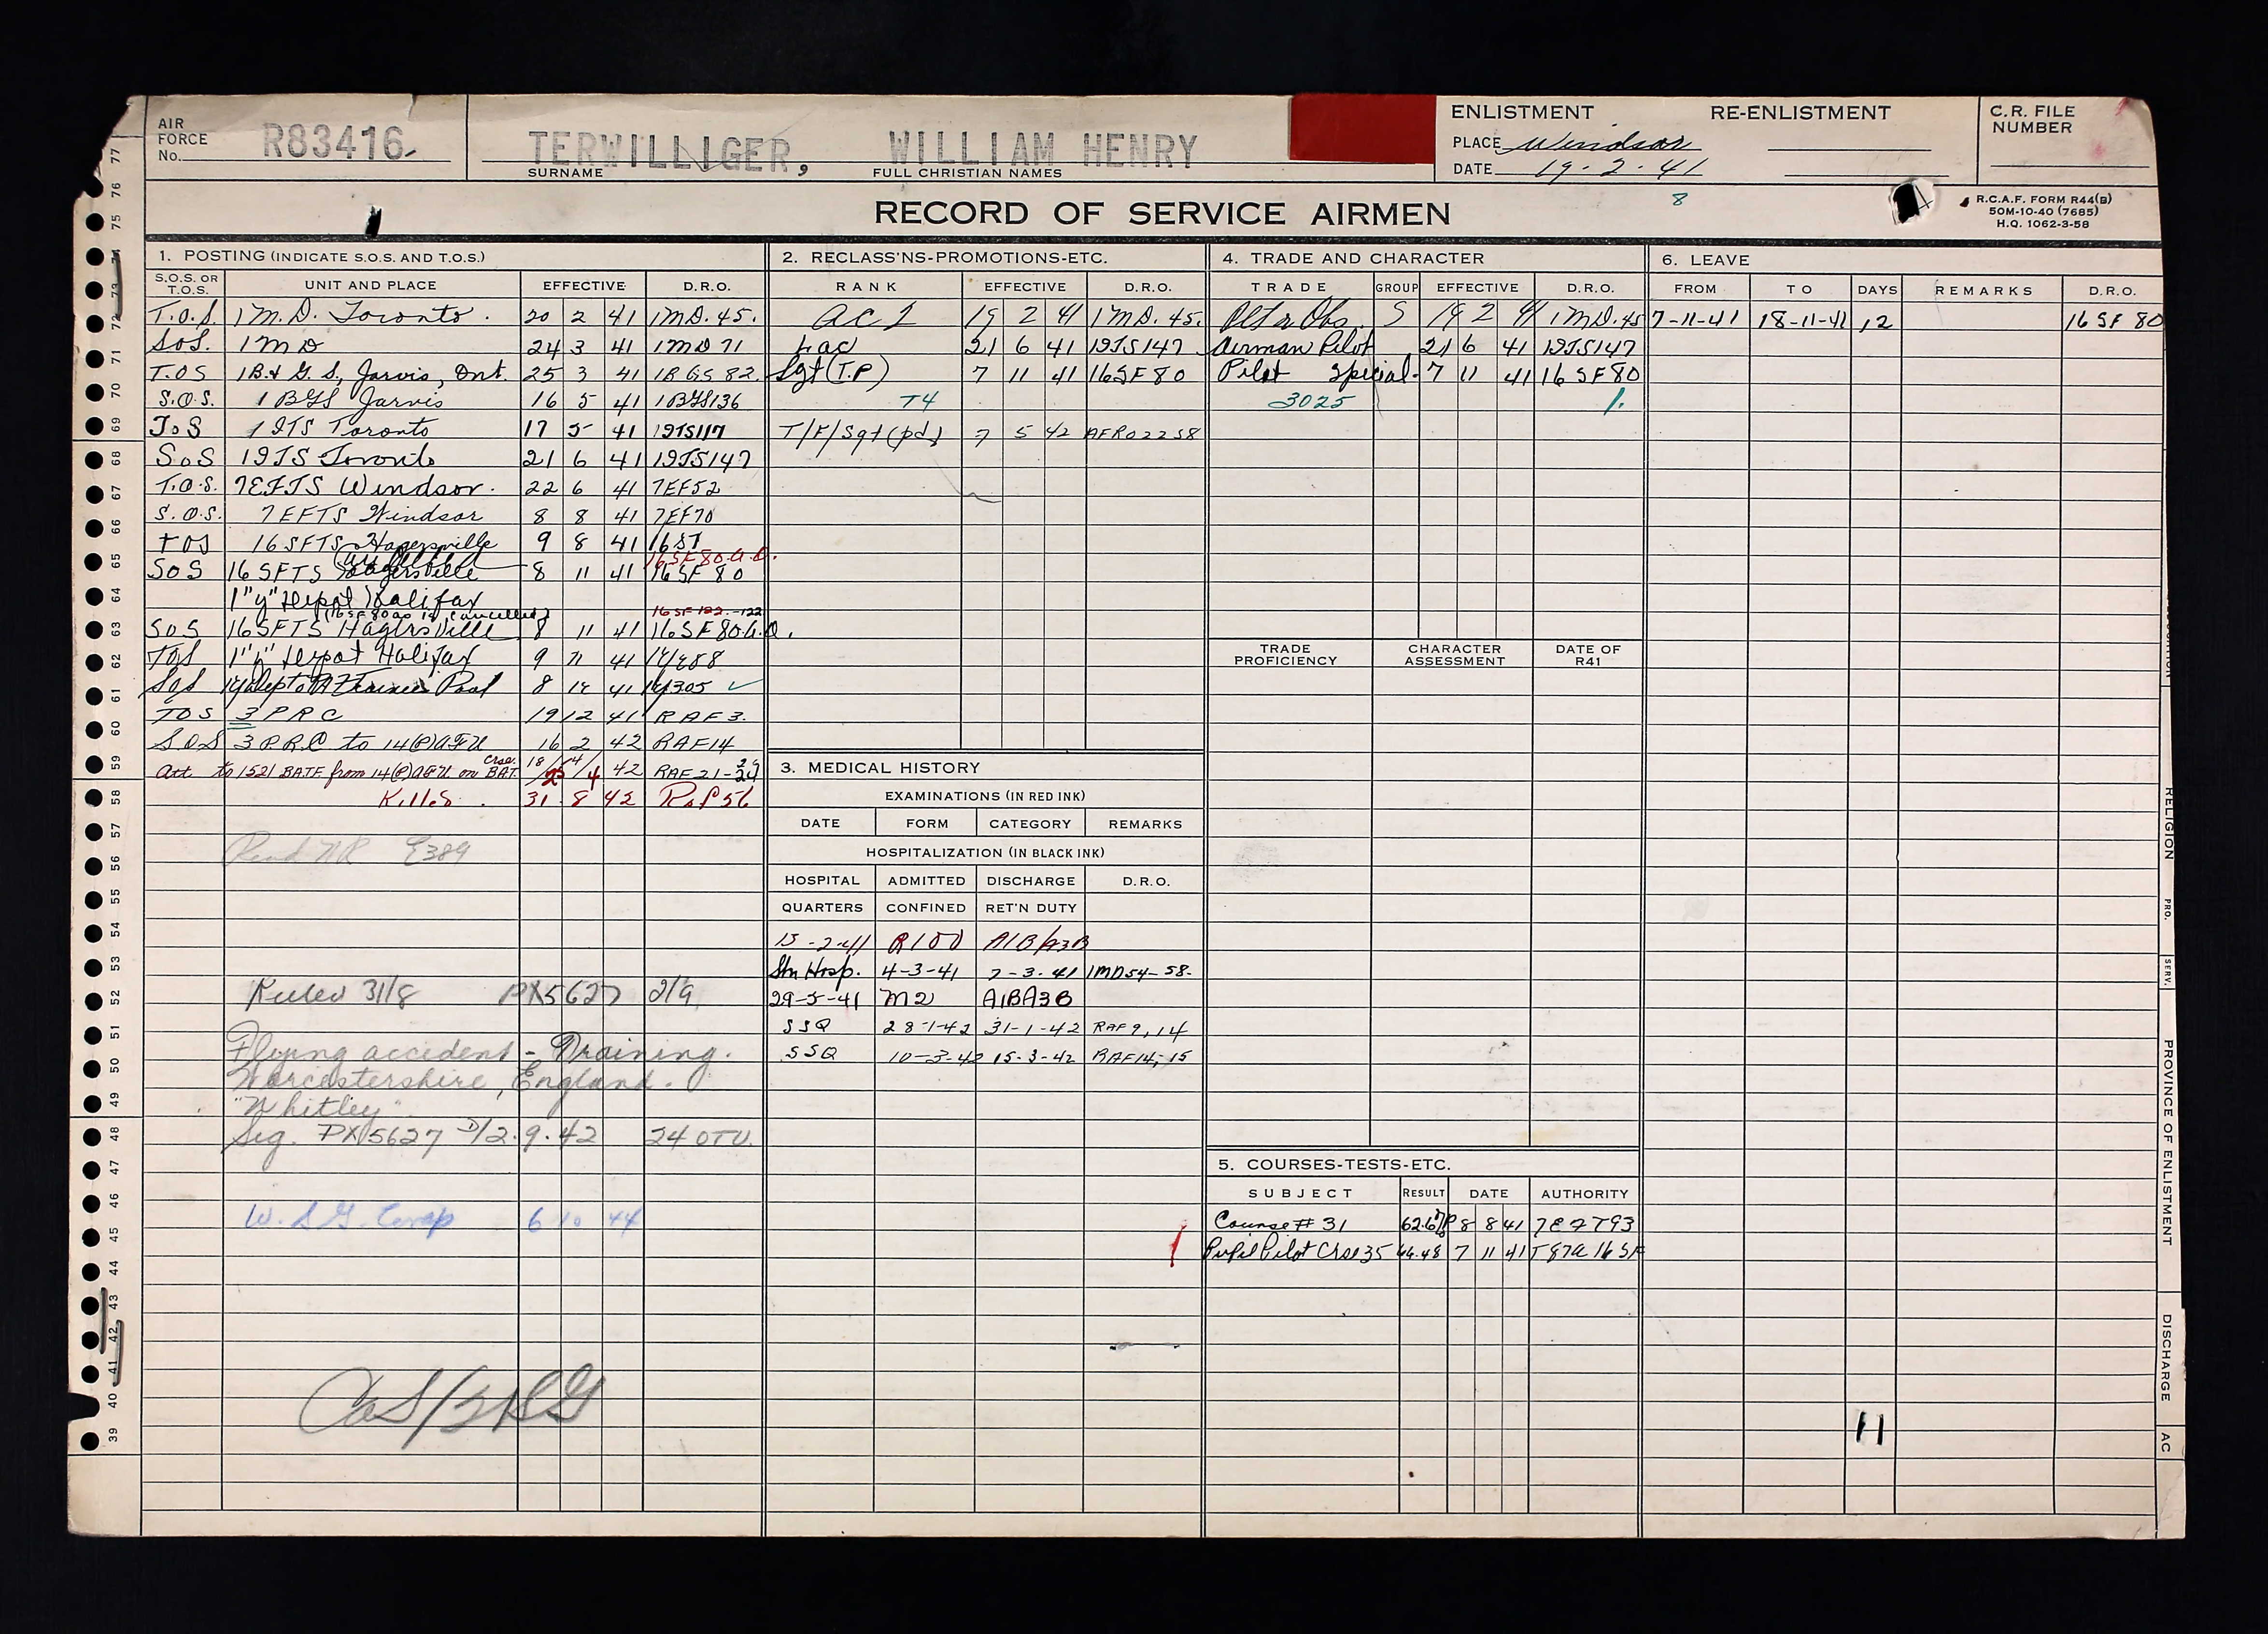 AIR FORCE No. R83416
TERWILLIGER, WILLIAM HENRY
SURNAME FULL CHRISTIAN NAMES
ENLISTMENT RE-ENLISTMENT
PLACE Windsor
DATE 19-2-41
C.R. FILE NUMBER
8
RECORD OF SERVICE AIRMEN
R.C.A.F. FORM R44(B)
50M-10-40 (7685)
H.Q. 1062-3-58
1. POSTING (INDICATE S.O.S. AND T.O.S.)
S.O.S. OR T.O.S. UNIT AND PLACE EFFECTIVE D.R.O.
T.O.S. 1 M.D. Toronto. 20 2 41 1MD.45.
SOS. 1 MD 24 3 41 1MD 71
T.OS 1B.& G.S, Jarvis, Ont. 25 3 41 1BGS 82.
S.O.S. 1 BGS Jarvis 16 5 41 1BGS136
ToS 1 ITS Toronto 17 5 41 1ITS117
SoS 1ITS Toronto 21 6 41 1ITS147
T.O.S. 7EFTS Windsor. 22 6 41 7EF52
S.O.S. 7 EFTS Windsor 8 8 41 7EF70
TOS 16 SFTS Hagersville 9 8 41 16ST
16 SF 80.A.O.
SOS 16 SFTS Hagersville 8 11 41 16 SF 80
1"Y" Depot Halifax
(16 SF 80 as is cancelled) 16 SF 122.-122
SOS 16 SFTS Hagersville 8 11 41 16 SF 80.A.O.
TOS 1"Y" Depot Halifax 9 11 41 1Y288
SOS 1Y Dep to RAF Trainee Pool 8 12 41 1Y305
TOS 3 PRC 19 12 41 RAF 3.
SOS 3 PRC to 14(P)AFU 16 2 42 RAF14
Att to 1521 BATF from 14(P)AFU on BAT. Crse. 18/4/25/4 42 RAF 21-24
Killed. 31 8 42 Raf 56
Killed 31/8 PX5627 2/9
Flying accident - Training.
Worcestershire, England.
"Whitley"
Sig. PX5627 D/2.9.42 24 OTU.
W.S.G. Comp 6 10 44
2. RECLASS'NS-PROMOTIONS-ETC.
RANK EFFECTIVE D.R.O.
AC2 19 2 41 1MD.45.
Lac 21 6 41 1ITS147
Sgt (T.P) 7 11 41 16SF80
T4
T/F/Sgt (pd) 7 5 42 AFRO2258
3. MEDICAL HISTORY
EXAMINATIONS (IN RED INK)
DATE FORM CATEGORY REMARKS
HOSPITALIZATION (IN BLACK INK)
HOSPITAL ADMITTED DISCHARGE D.R.O.
QUARTERS CONFINED RET'N DUTY
15-2-41 R100 A1B/A3B
Stn Hosp. 4-3-41 7-3-41 1MD54-58.
29-5-41 M2 A1BA3B
SSQ 28-1-42 31-1-42 RAF 9,14
SSQ 10-3-42 15-3-42 RAF14,-15
4. TRADE AND CHARACTER
TRADE GROUP EFFECTIVE D.R.O.
S 19 2 41 1MD.45
Airman Pilot 21 6 41 1ITS147
Pilot Special. 7 11 41 16 SF80
3025 1.
TRADE PROFICIENCY CHARACTER ASSESSMENT DATE OF R41
5. COURSES-TESTS-ETC.
SUBJECT RESULT DATE AUTHORITY
Course # 31 62.6% P 8 8 41 7EFT93
Pupil Pilot Crse 35 66.48 7 11 41 T97A 16 SF
6. LEAVE
FROM TO DAYS REMARKS D.R.O.
7-11-41 18-11-41 12 16 SF 80
11
77 76 75 74 73 72 71 70 69 68 67 66 65 64 63 62 61 60 59 58 57 56 55 54 53 52 51 50 49 48 47 46 45 44 43 42 41 40 39
RELIGION
PRO.
SERV.
PROVINCE OF ENLISTMENT
DISCHARGE
AC